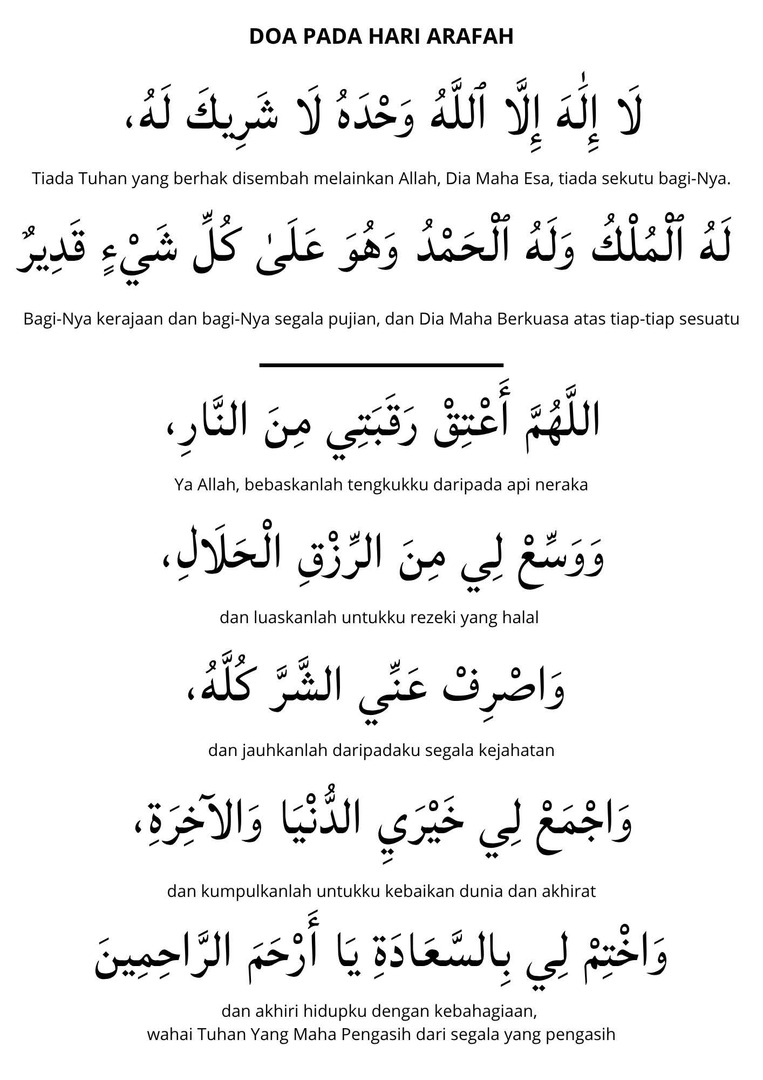 DOA PADA HARI ARAFAH
لَا إِلَٰهَ إِلَّا ٱللَّهُ وَحْدَهُ لَا شَرِيكَ لَهُ،
Tiada Tuhan yang berhak disembah melainkan Allah, Dia Maha Esa, tiada sekutu bagi-Nya.
لَهُ ٱلْمُلْكُ وَلَهُ ٱلْحَمْدُ وَهُوَ عَلَىٰ كُلِّ شَيْءٍ قَدِيرٌ
Bagi-Nya kerajaan dan bagi-Nya segala pujian, dan Dia Maha Berkuasa atas tiap-tiap sesuatu
اللَّهُمَّ أَعْتِقْ رَقَبَتِي مِنَ النَّارِ،
Ya Allah, bebaskanlah tengkukku daripada api neraka
وَوَسِّعْ لِي مِنَ الرِّزْقِ الْحَلَالِ،
dan luaskanlah untukku rezeki yang halal
وَاصْرِفْ عَنِّي الشَّرَّ كُلَّهُ،
dan jauhkanlah daripadaku segala kejahatan
وَاجْمَعْ لِي خَيْرَيِ الدُّنْيَا وَالآخِرَةِ،
dan kumpulkanlah untukku kebaikan dunia dan akhirat
وَاخْتِمْ لِي بِالسَّعَادَةِ يَا أَرْحَمَ الرَّاحِمِينَ
dan akhiri hidupku dengan kebahagiaan,
wahai Tuhan Yang Maha Pengasih dari segala yang pengasih